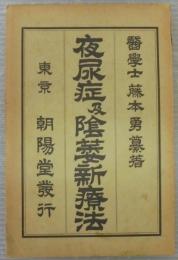 醫學士 藤本勇纂著
夜尿症及陰萎新療法
東京 朝陽堂發行